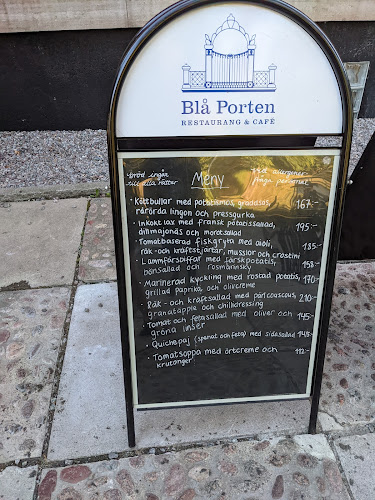 Blå Porten
RESTAURANG & CAFÉ
bröd ingår
till alla rätter
Meny
vid allergier
fråga personalen
· Köttbullar med potatismos, gräddsås, 167.-
rårörda lingon och pressgurka
· Inkokt lax med fransk potatissallad, 195.-
dillmajonäs och morotsallad
· Tomatbaserad fiskgryta med aioli, 185.-
räk- och kräftstjärtar, musslor och crostini
· Lammfärsbiffar med färskpotatis, 158.-
bönsallad och rosmarinsky
· Marinerad kyckling med rostad potatis, 170.-
grillad paprika och olivcreme
· Räk- och kräftsallad med pärlcouscous, 210.-
granatäpple och chilidressing
· Tomat och fetasallad med oliver och 145.-
gröna linser
· Quichepaj (spenat och fetao) med sidosallad 145.-
· Tomatsoppa med örtcreme och 112.-
krutonger